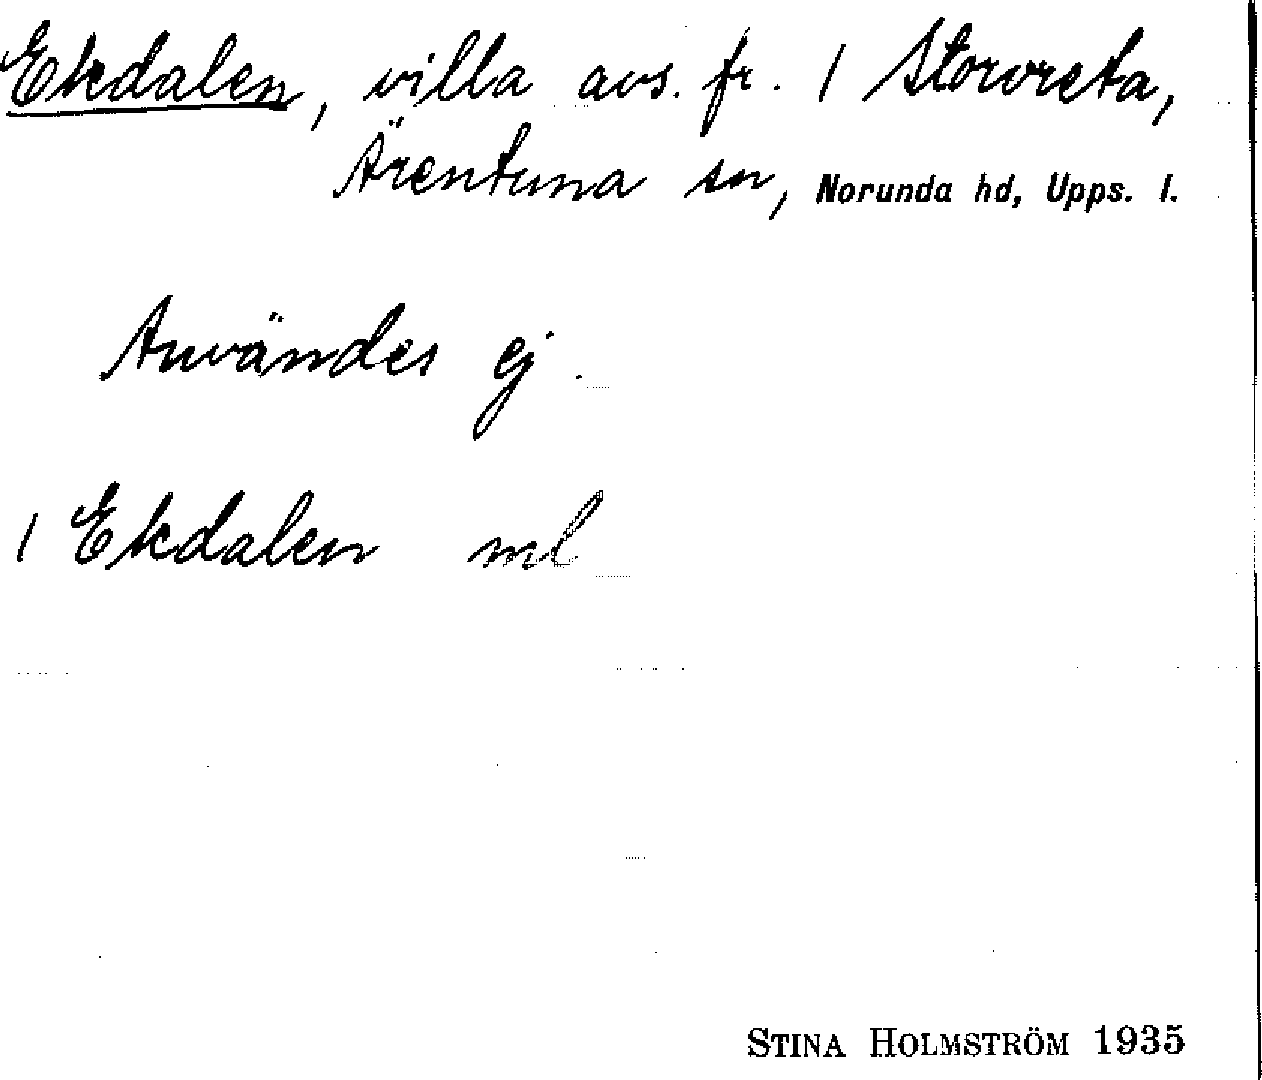 Ekdalen, villa avs. fr. 1 Storvreta,
Ärentuna sn, Norunda hd, Upps. l.
Användes ej.
1 Ekdalen ml
STINA HOLMSTRÖM 1935